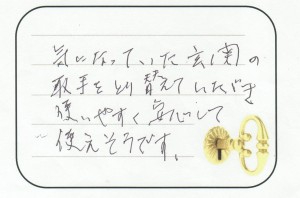 気になっていた玄関の
取手をとり替えていただき
使いやすく安心して
使えそうです。